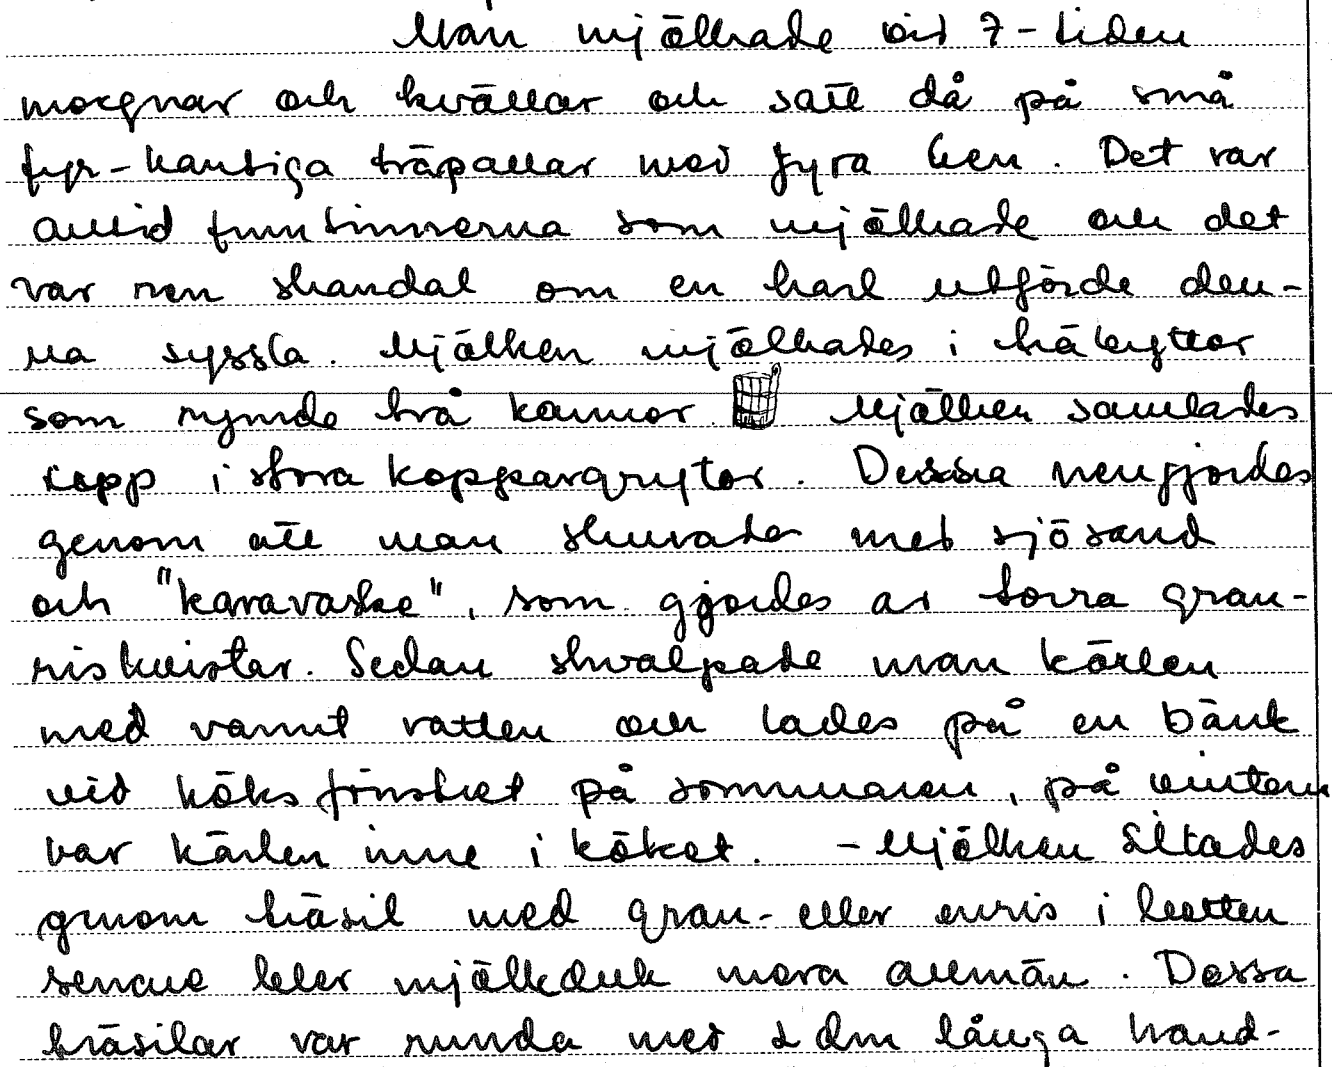 Man mjölkade vid 7-tiden
morgnar och kvällar och satt då på små
fyr-kantiga träpallar med fyra ben. Det var
alltid kvinnorna som mjölkade och det
var ren skandal om en karl utförde den-
na syssla. Mjölken mjölkades i träbyttor
som rymde två kannor. Mjölken samlades
upp i stora koppargrytor. Dessa rengjordes
genom att man skurade med sjösand
och "karavaske", som gjordes av torra gran-
riskvistar. Sedan skvalpade man kärlen
med varmt vatten och lades på en bänk
vid köksfönstret på sommaren, på vintern
var kärlen inne i köket. - Mjölken siltades
genom träsil med gran- eller enris i botten
senare blev mjölkduk mera allmän. Dessa
träsilar var runda med 2 dm långa hand-